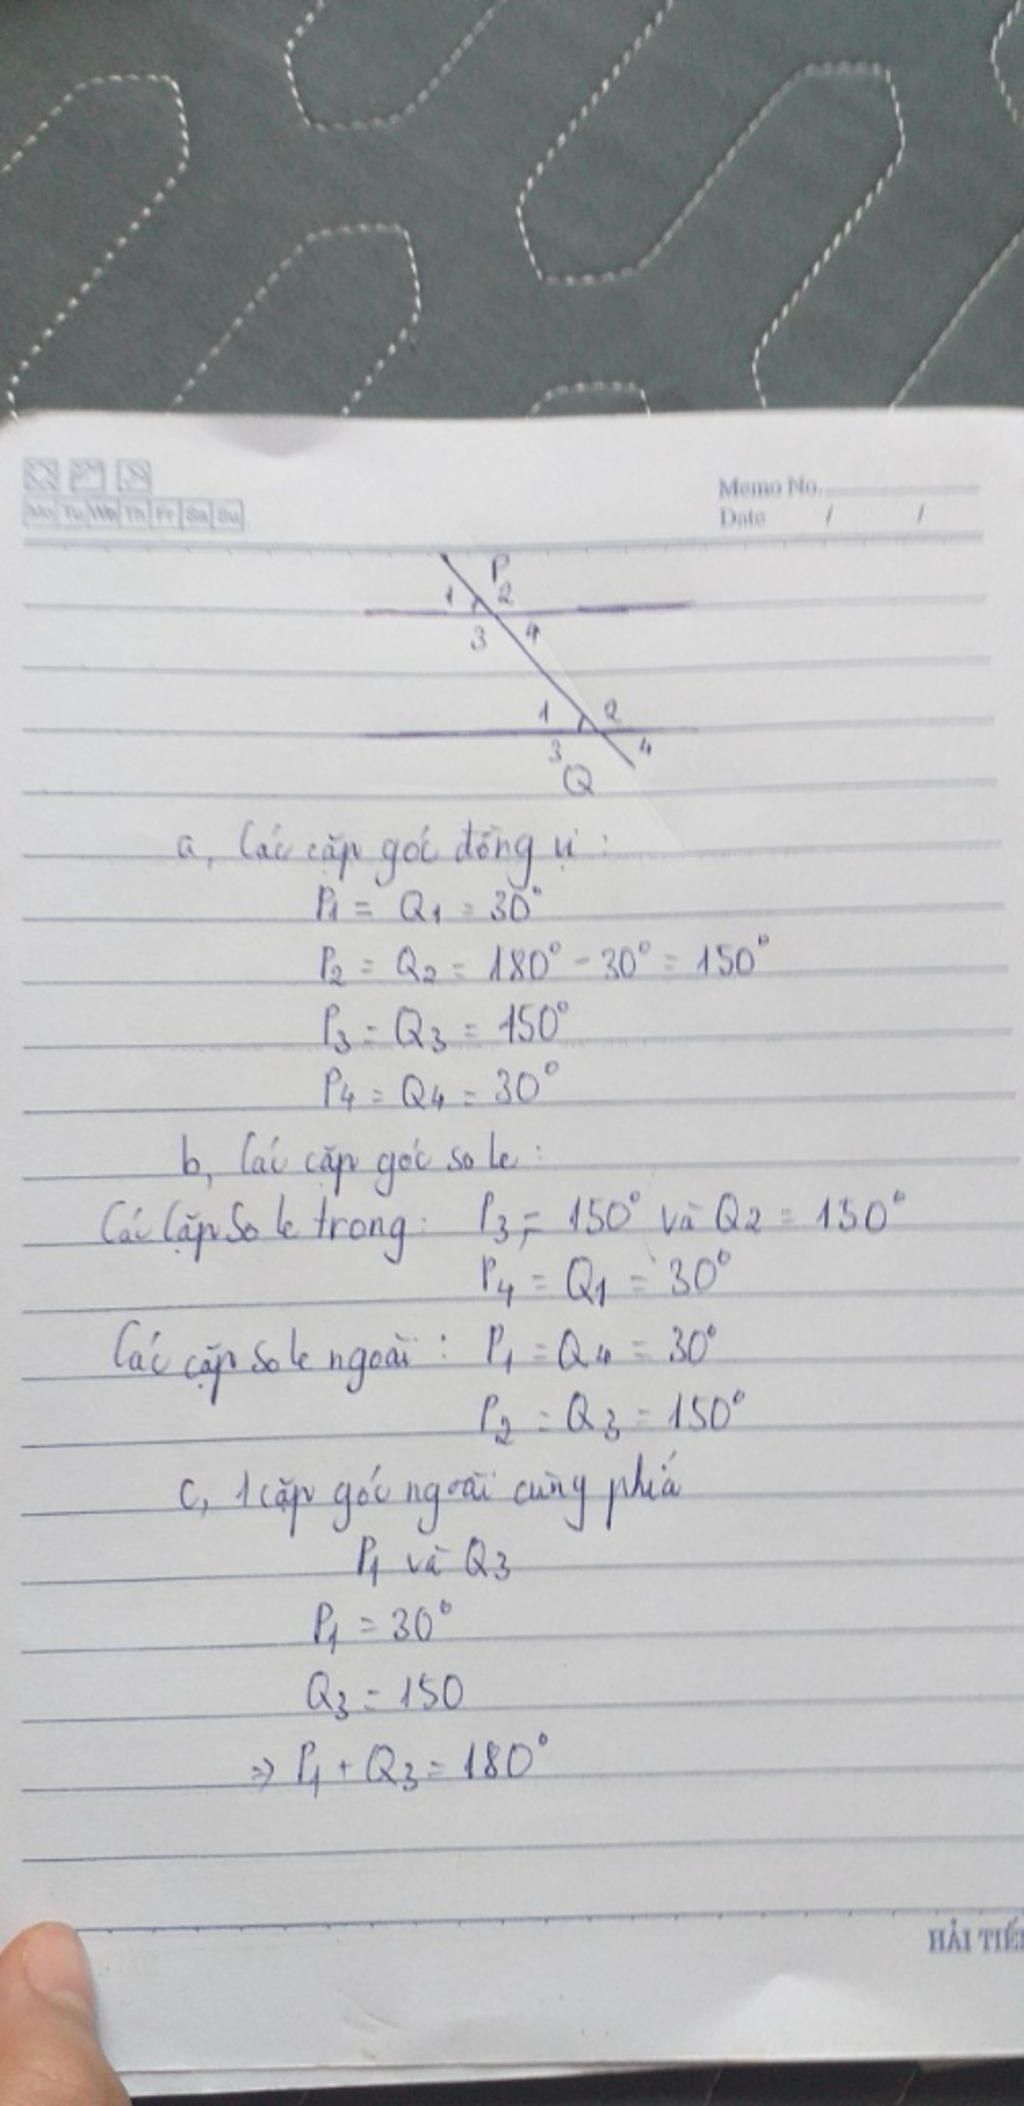 Memo No.
Mo Tu We Th Fr Sa Su
Date / /
P
1 2
3 4
1 2
3 4
Q
a, Các cặp góc đồng vị :
P1 = Q1 = 30°
P2 = Q2 = 180° - 30° = 150°
P3 = Q3 = 150°
P4 = Q4 = 30°
b, Các cặp góc so le :
Các cặp so le trong : P3 = 150° và Q2 = 150°
P4 = Q1 = 30°
Các cặp so le ngoài : P1 = Q4 = 30°
P2 = Q3 = 150°
c, 1 cặp góc ngoài cùng phía
P1 và Q3
P1 = 30°
Q3 = 150
⇒ P1 + Q3 = 180°
HẢI TIẾN